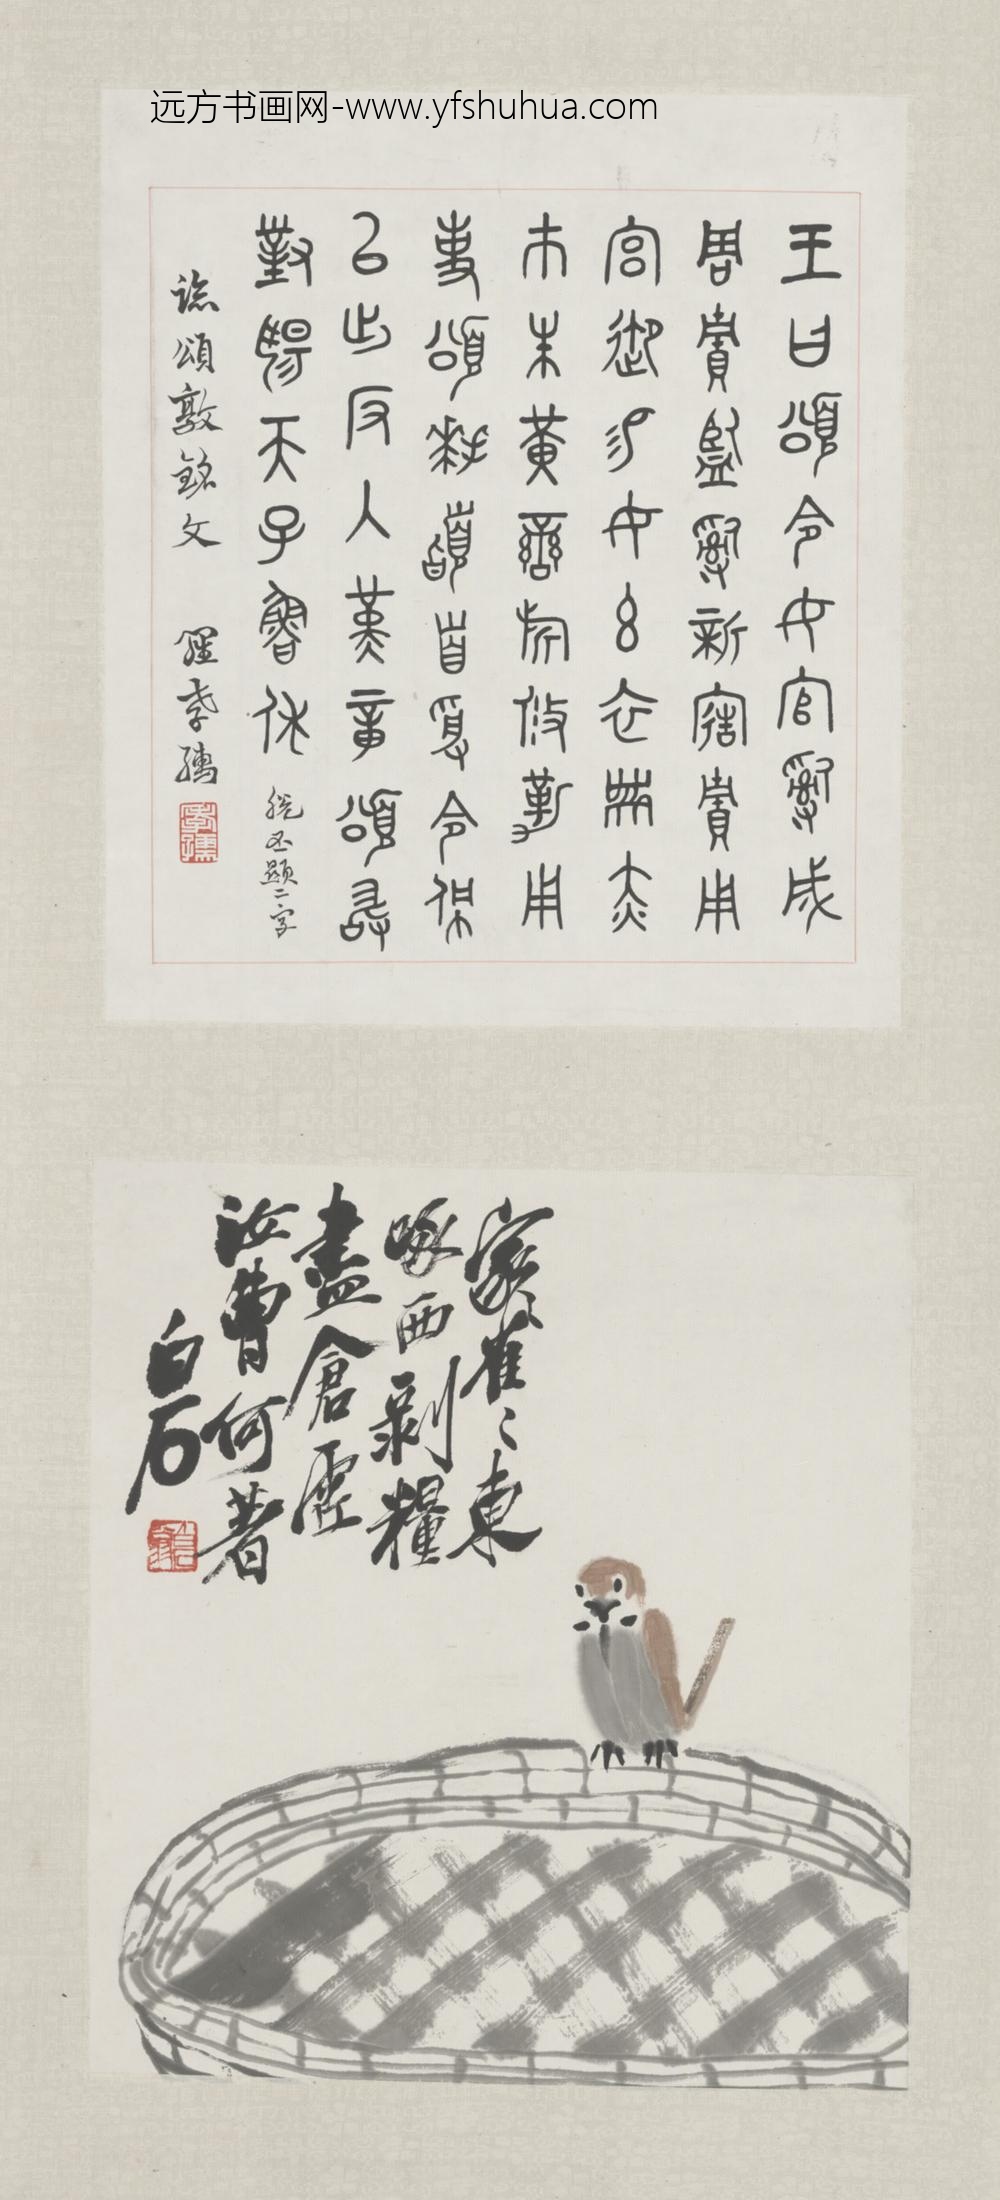 远方书画网-www.yfshuhua.com
王曰頌令女官𤔲成
周賈監𤔲新寤賈用
宮御易女玄衣黹赤
巿朱黃鑾旂攸勒用
事頌拜𩒨首受令佩
以出反人堇章頌敢
對揚天子魯休 脫丕顯二字
臨頌敦銘文
家〻雀〻東
啄西剝糧
盡倉虛
汝曹何著
白石